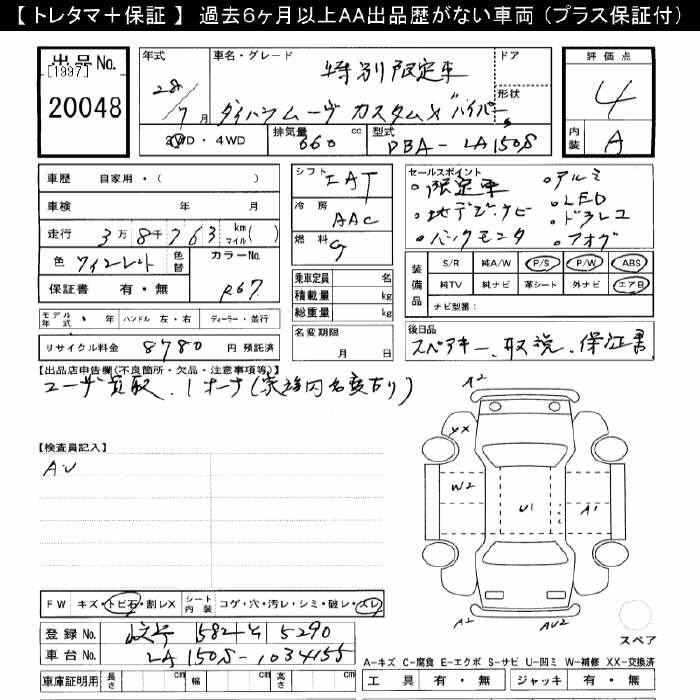 【トレタマ＋保証】 過去6ヶ月以上AA出品歴がない車両（プラス保証付）
出品No.
[1997]
20048
年式
28/7月
2WD・4WD
車名・グレード
特別限定車
ダイハツムーヴ カスタムX ハイパー
ドア
形状
排気量
660 cc
型式
DBA-LA150S
評価点
4
内装
A
車歴 自家用・（ ）
車検 年 月
走行 3万8千763 km（マイル）
色 ワインレッド
色替
カラーNo.
R67
保証書 有・無
シフト
IAT
冷房
AAC
燃料
G
乗車定員 名
積載量 kg
総重量 kg
セールスポイント
・限定車 ・アルミ
・地デジ、ナビ ・LED
・バックモニタ ・ドラレコ
・フォグ
装備品
S/R 純A/W P/S P/W ABS
純TV 純ナビ 革シート 外ナビ エアB
ナビ型番：
モデル年式 ・ 年 ハンドル 左・右 ディーラー・並行
リサイクル料金 8780 円 預託済
名変期限
月 日
後日品
スペアキー、取説、保証書
【出品店申告欄（不良箇所・欠品・注意事項等）】
ユーザ買取、1オーナ（家族内名変有り）
【検査員記入】
AU
A2
XX
W2
U1
A1
A2
AU2
スペア
FW キズ・トビ石・割レX
シート内装 コゲ・穴・汚レ・シミ・破レ・スレ
登録No. 5290
車台No. LA150S-1034155
車庫証明用 長さ cm 幅 cm 高さ cm
A-キズ C-腐食 E-エクボ S-サビ U-凹ミ W-補修 XX-交換済
工具 有・無 ジャッキ 有・無